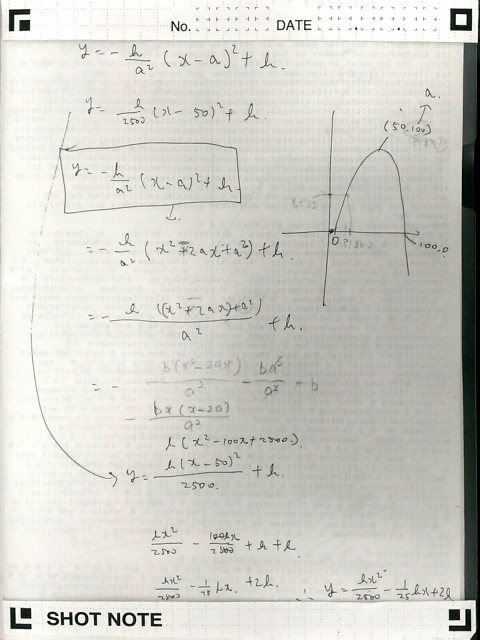 No. DATE
y = - h/a² (x - a)² + h.
y = h/2500 (x - 50)² + h.
a.
(50,100)
y = - h/a² (x - a)² + h
= - h/a² (x² - 2ax + a²) + h.
0
100,0
= - h((x² - 2ax) + a²)/a² + h.
= - b(x² - 2ax)/a² - ba²/a² + b
- bx(x - 2a)/a²
h(x² - 100x + 2500).
y = h(x - 50)²/2500 + h.
hx²/2500 - 100hx/2500 + h + h
hx²/2500 - 1/25 hx + 2h. ∴ y = hx²/2500 - 1/25 hx + 2h
SHOT NOTE